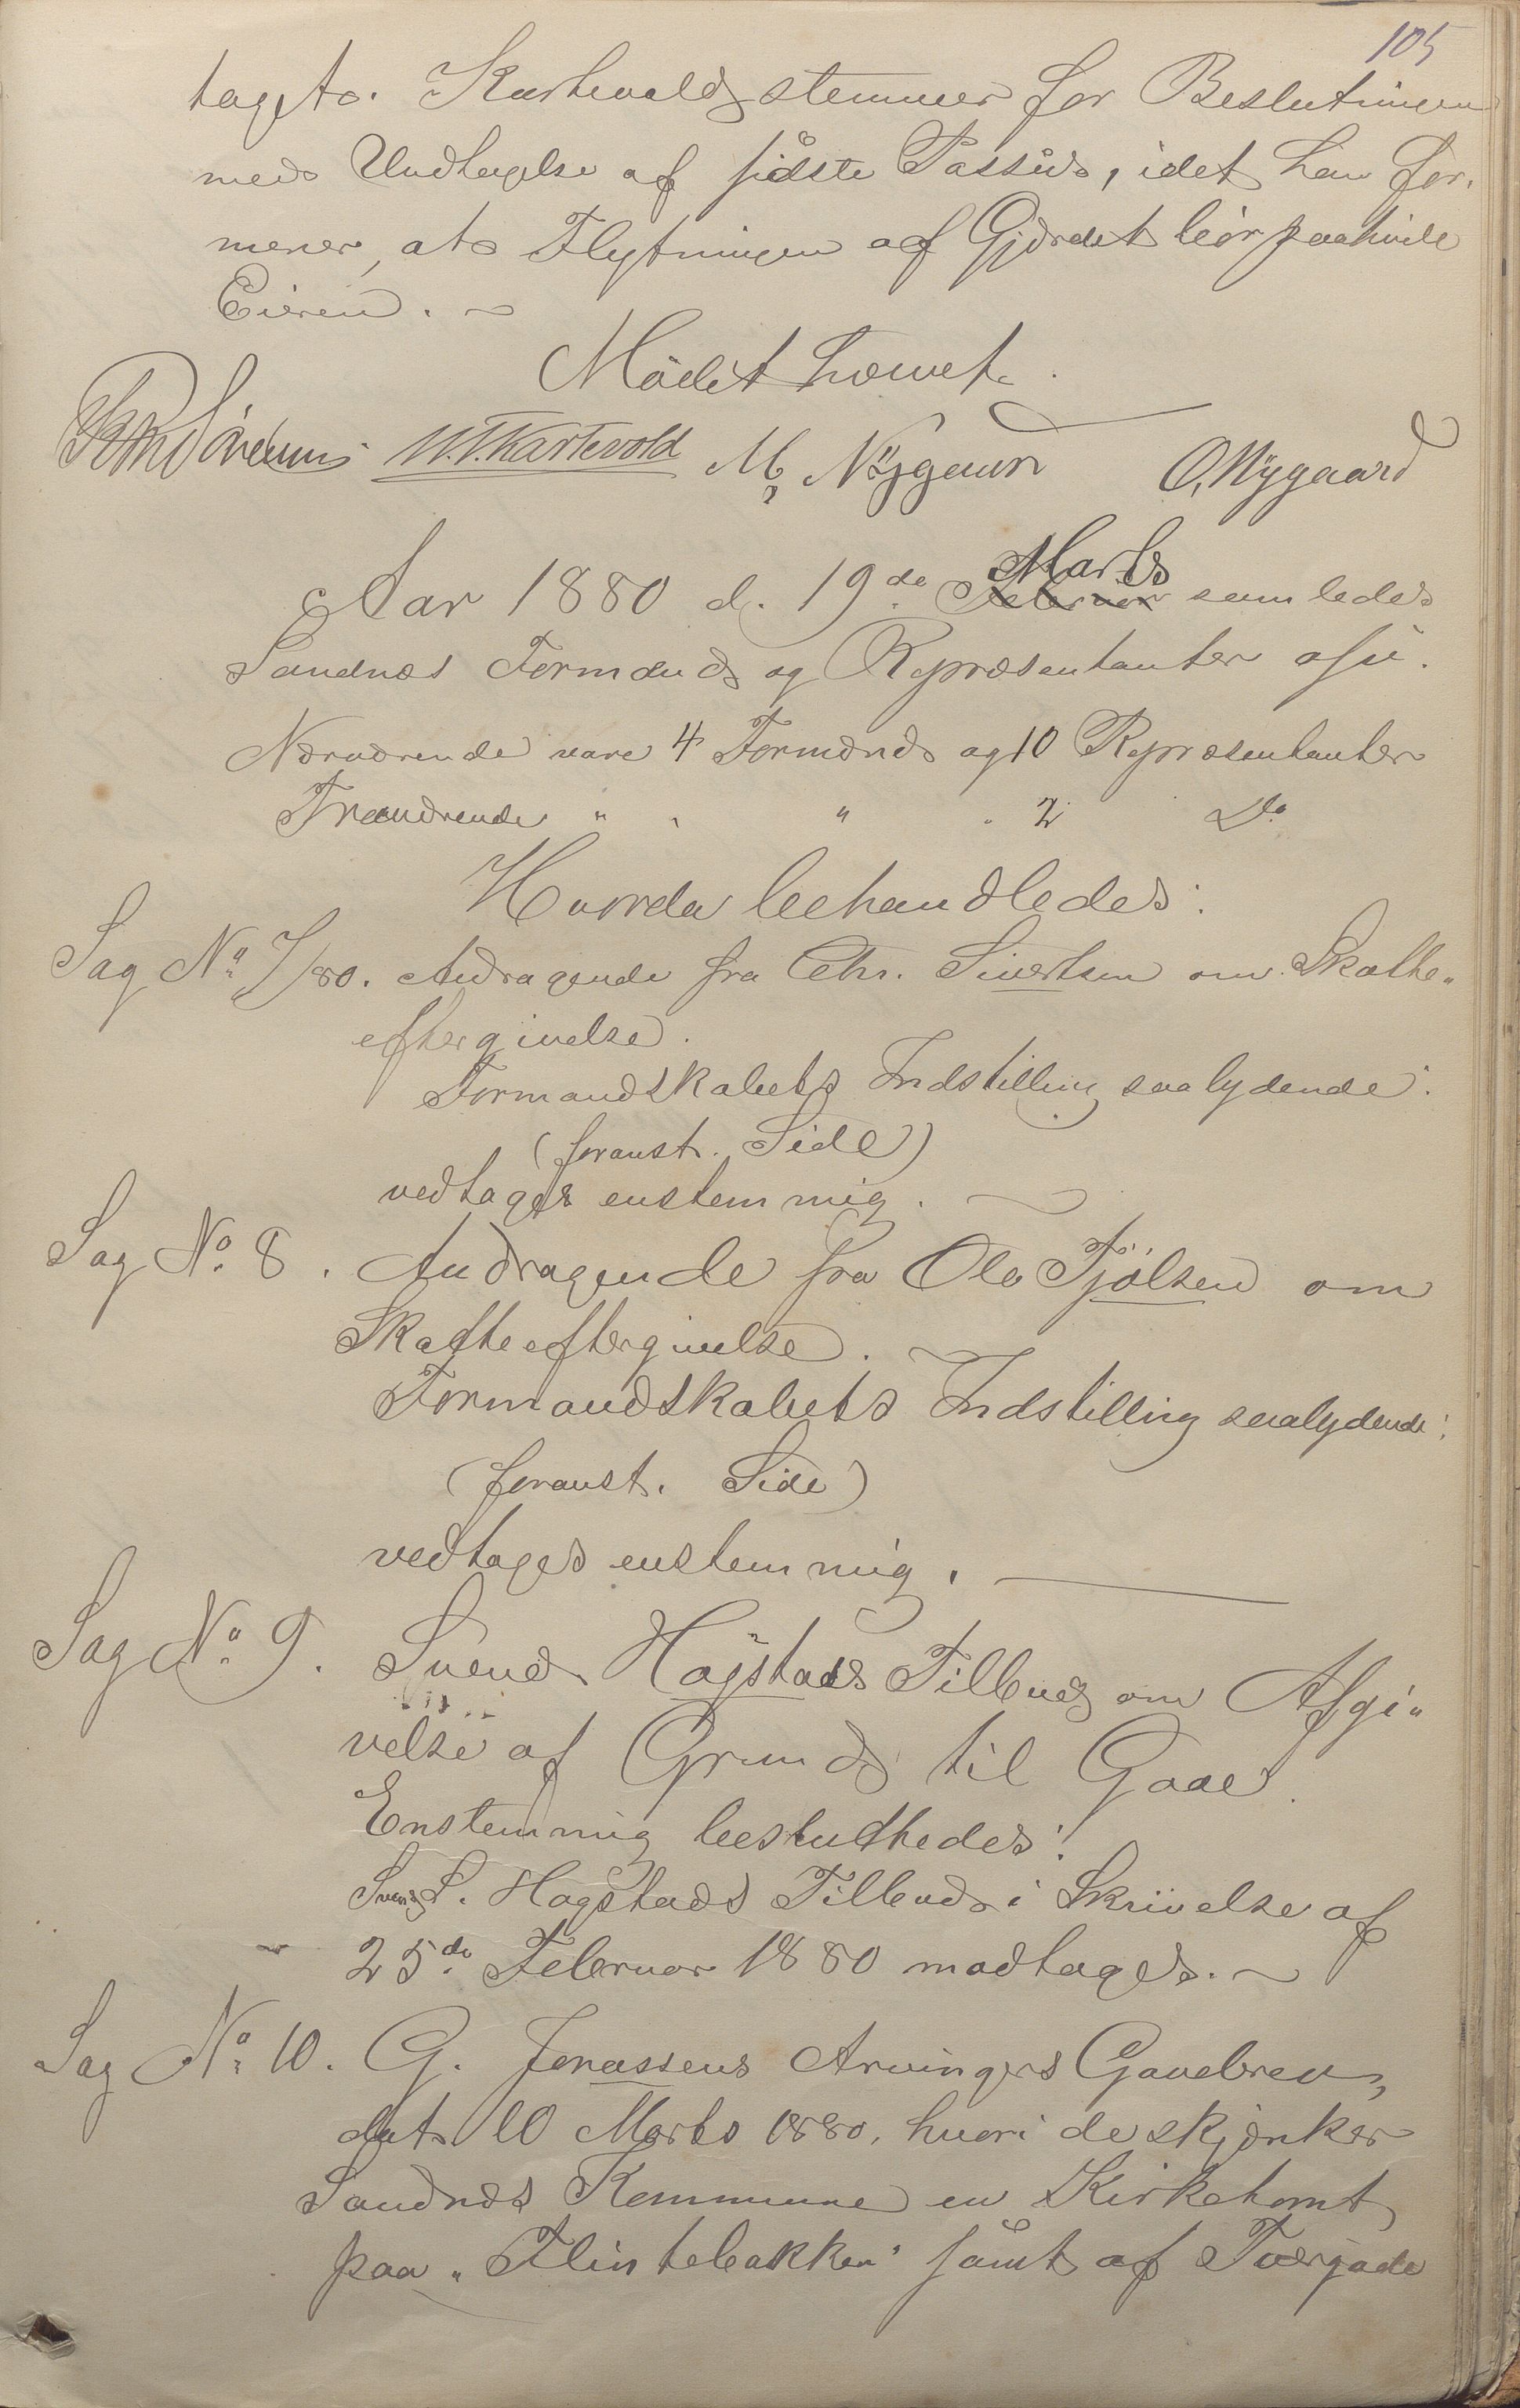 105
taget. Kartevold stemmer for Beslutningen
med Undtagelse af sidste Passus, idet han for-
mener, at Flytningen af Gjærdet bør paahvile
Eieren. ~
Mödet hævet.
W. T. Kartevold M. Nÿgaard O. Nÿgaard
Aar 1880 d. 19de Marts Februar samledes
Sandnæs Formænd og Repræsentanter osv.
Nærværende vare 4 Formænd og 10 Repræsentanter
Fraværende " " " " 2 Do
Hvorda behandledes:
Sag No 7/80. Andragende fra Chr. Sivertsen om Skatte-
eftergivelse.
Formandskabets Indstilling saalydende:
(foranst. Side)
vedtages enstemmig.
Sag No 8. Andragende fra Ole Tjölsen om
Skatteeftergivelse.
Formandskabets Indstilling saalydende:
(foranst. Side)
vedtages enstemmig.
Sag No 9. Svend Høgstads Tilbud om Afgi-
velse af Grund til Gade.
Enstemmig besluttedes:
Svend S. Høgstads Tilbud i Skrivelse af
25de Februar 1880 modtages. ~
Sag No 10. G. Jonassens Arvingers Gavebrev,
dat. 10 Marts 1880, hvori de skjænker
Sandnæs Kommune en Kirketomt
paa "Flintebakken" samt af Tvergade